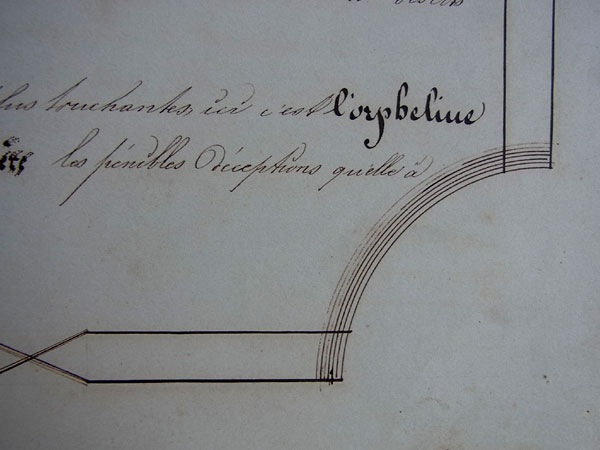 touchantes, ici c'est l'orpheline
les pénibles Déceptions qu'elle à